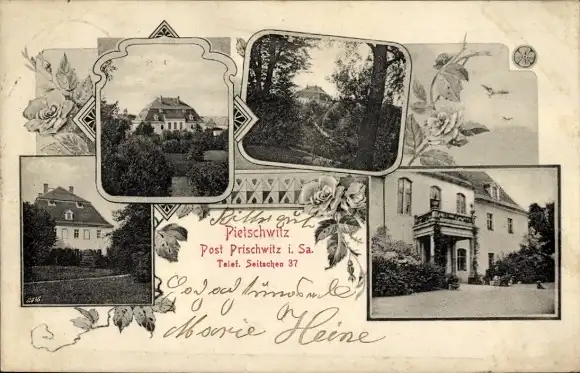 Rittergut
Pietschwitz
Post Prischwitz i. Sa.
Telef. Seitschen 37
Marie Heine